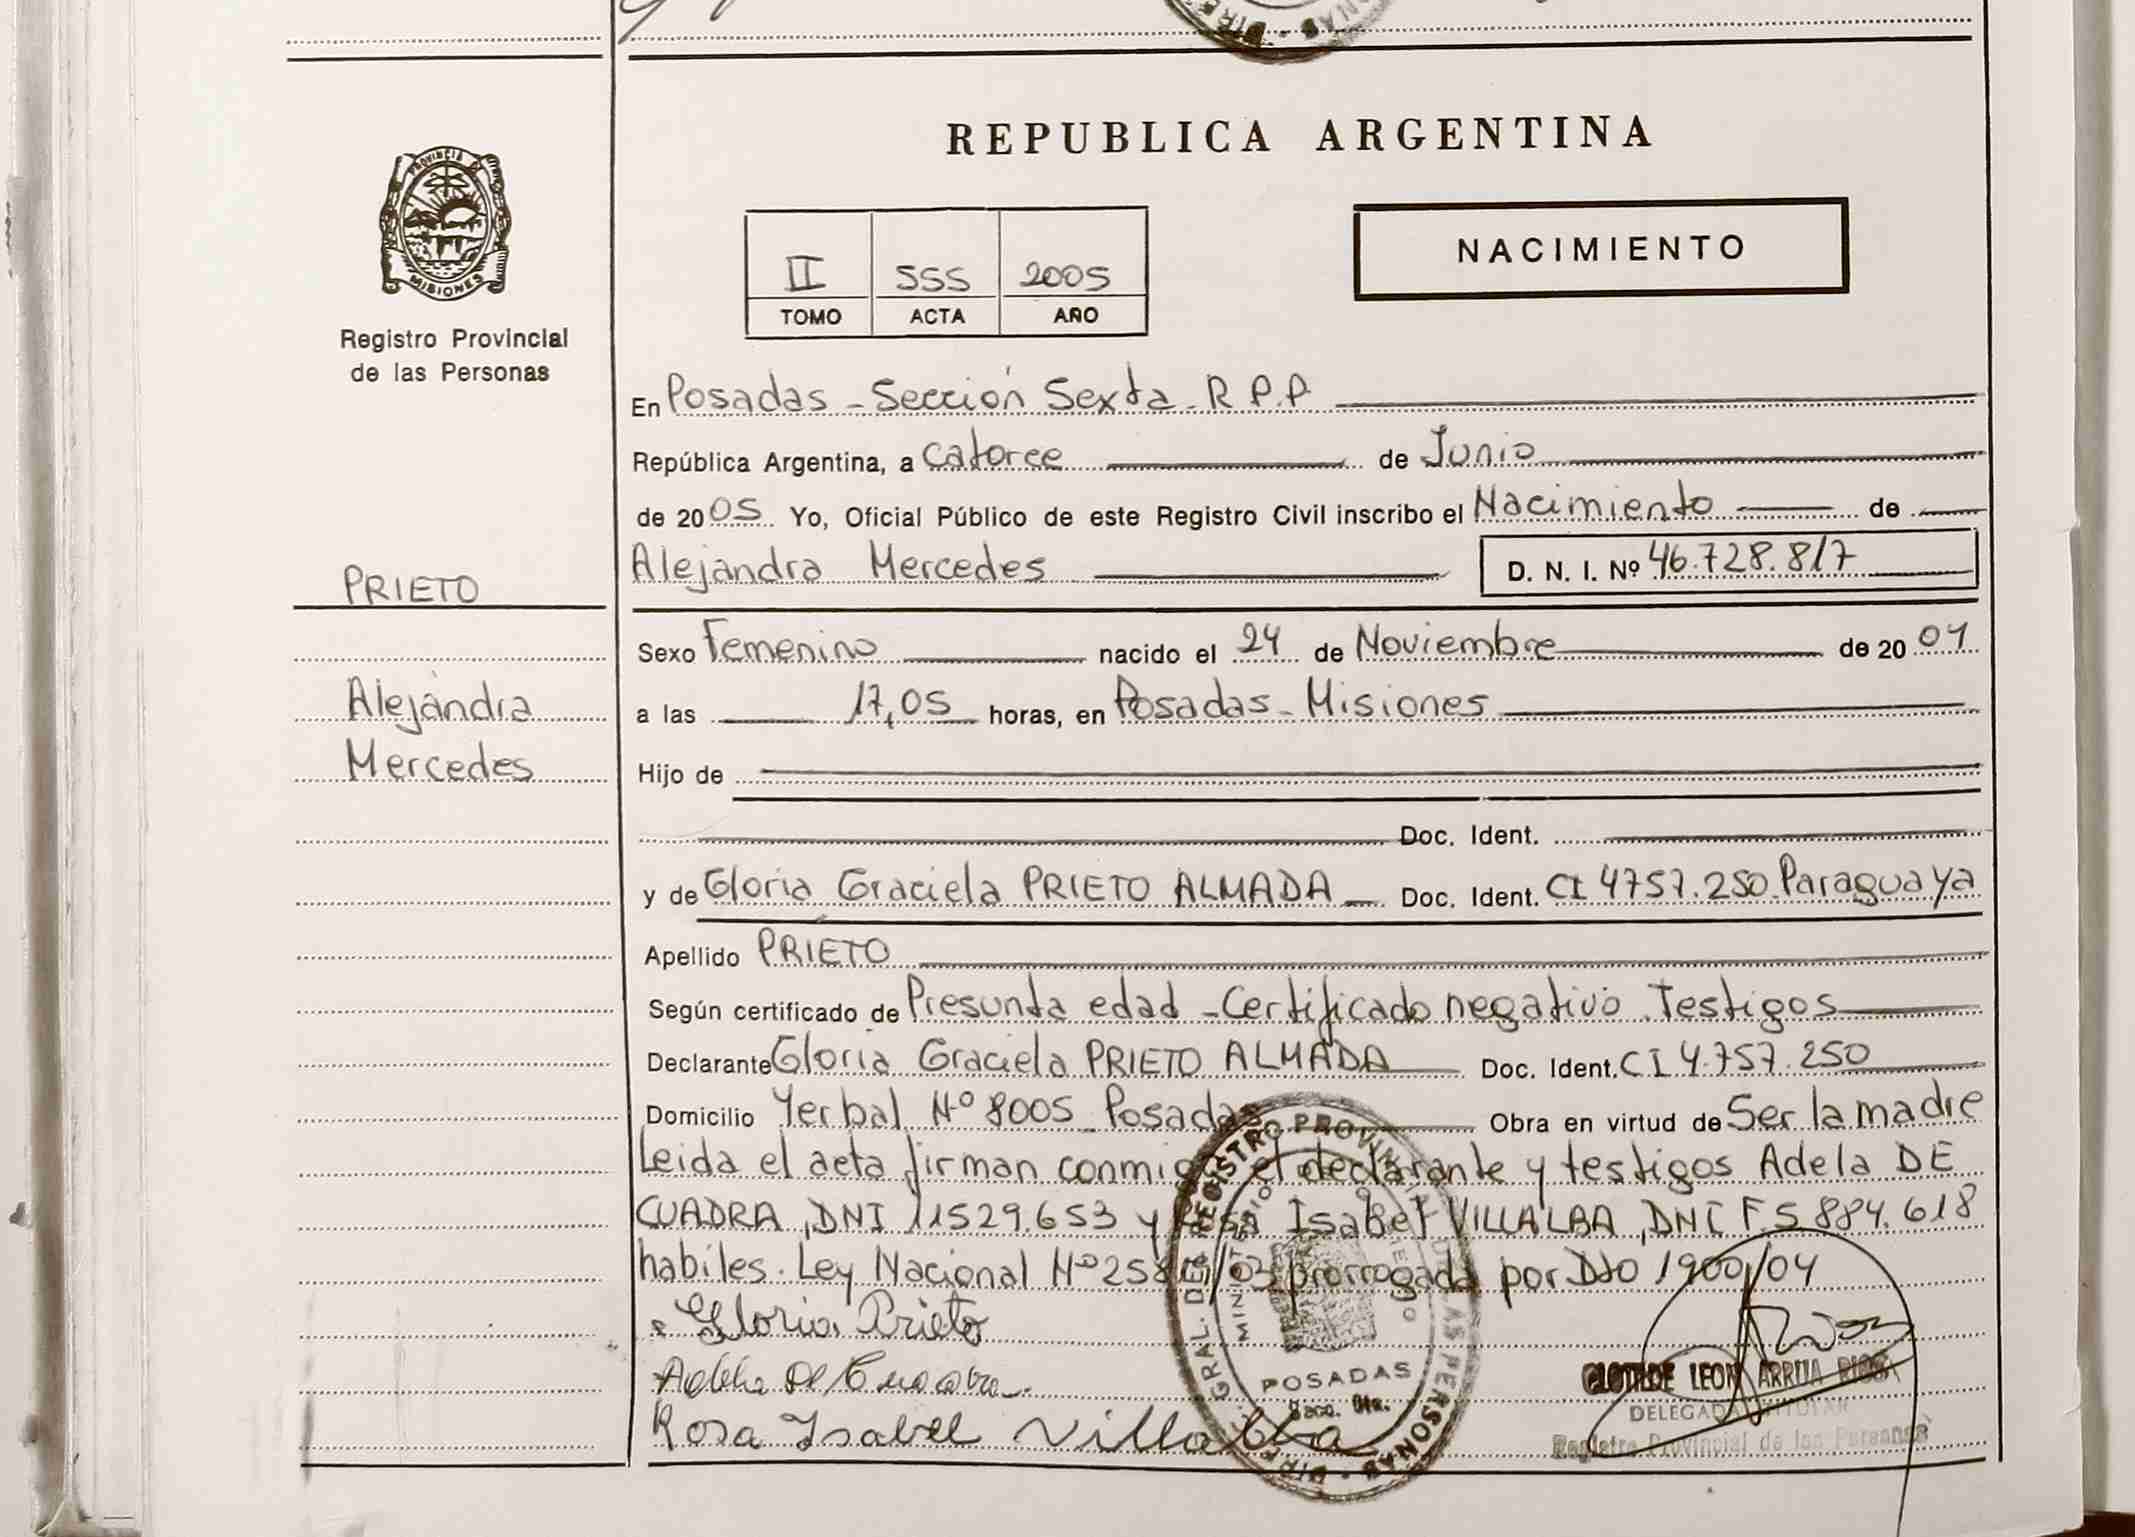 REPUBLICA ARGENTINA
PROVINCIA DE
MISIONES
Registro Provincial
de las Personas
II 555 2005
TOMO ACTA AÑO
NACIMIENTO
En Posadas - Sección Sexta - R.P.P.
República Argentina, a catorce de Junio
de 2005 Yo, Oficial Público de este Registro Civil inscribo el Nacimiento de
PRIETO
Alejandra Mercedes D. N. I. Nº 46.728.817
Sexo Femenino nacido el 24 de Noviembre de 2004
Alejandra
a las 17,05 horas, en Posadas - Misiones
Mercedes
Hijo de
Doc. Ident.
y de Gloria Graciela PRIETO ALMADA Doc. Ident. CI 4757.250 Paraguaya
Apellido PRIETO
Según certificado de Presunta edad - Certificado negativo. Testigos
Declarante Gloria Graciela PRIETO ALMADA Doc. Ident. CI 4.757.250
Domicilio Yerbal Nº 8005 Posadas Obra en virtud de Ser la madre
Leida el acta firman conmigo el declarante y testigos Adela DE
CUADRA, DNI 11529.653 y Rosa Isabel VILLALBA, DNI F.5884.618
habiles. Ley Nacional Nº 258 /03 prorrogada por Dto 1900/04
Gloria Prieto
Rosa Isabel Villalba
GRAL. DEL REGISTRO PROVINCIAL DE LAS PERSONAS
MINISTERIO DE GOBIERNO
POSADAS
CLOTILDE LEON ARRUA RIOS
DELEGADA TITULAR
Registro Provincial de las Personas